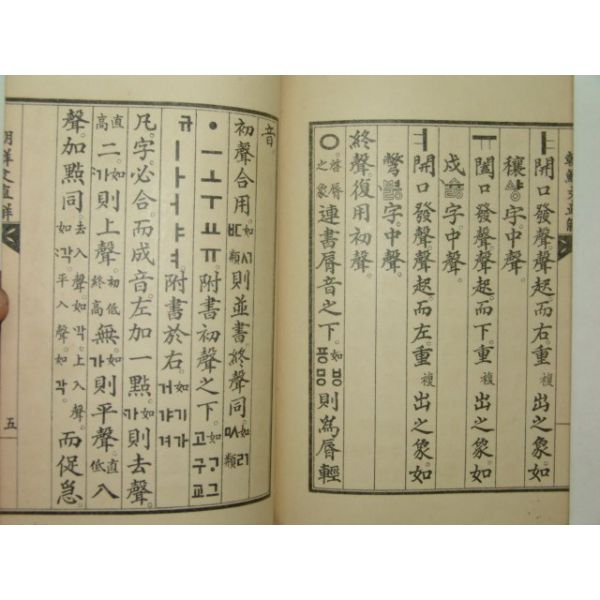 朝鮮文直解
ㅑ 開口發聲。聲起而右。重複出之象。如
穰字中聲。
ㅠ 闔口發聲。聲起而下。重複出之象。如
戌字中聲。
ㅕ 開口發聲。聲起而左。重複出之象。如
彆字中聲。
終聲復用初聲。
ㅇ 啓脣之象 連書脣音之下。如ㅸ 則爲脣輕
音
初聲合用 類 則並書終聲同 類
ㆍㅡㅗㅜㅛㅠ附書初聲之下。如ᄀᆞ그고구교
규ㅣㅏㅓㅑㅕ附書於右。如기가거갸겨
凡字必合而成音左加一點。如가則去聲。
直高二。如가則上聲。初低終高無。如가則平聲。直低入
聲加點同去入聲如각。上入聲如각。平入聲如각。而促急。
朝鮮文直解
五